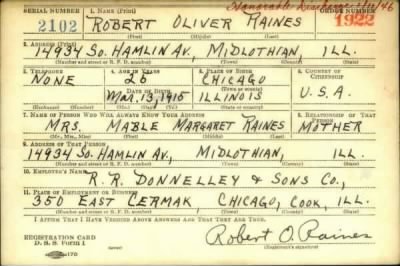 Honorable Discharge
SERIAL NUMBER 1. NAME (Print) ORDER NUMBER
2102 ROBERT OLIVER RAINES 1922
(First) (Middle) (Last)
2. ADDRESS (Print)
14934 SO. HAMLIN AV., MIDLOTHIAN, ILL.
(Number and street or R. F. D. number) (Town) (County) (State)
3. TELEPHONE 4. AGE IN YEARS 5. PLACE OF BIRTH 6. COUNTRY OF CITIZENSHIP
NONE 26 CHICAGO
(Town or county)
DATE OF BIRTH
MAR. 13, 1915 ILLINOIS U.S.A.
(Mo.) (Day) (Yr.) (State or country)
7. NAME OF PERSON WHO WILL ALWAYS KNOW YOUR ADDRESS 8. RELATIONSHIP OF THAT PERSON
MRS. MABLE MARGARET RAINES MOTHER
(Mr., Mrs., Miss) (First) (Middle) (Last)
9. ADDRESS OF THAT PERSON
14934 SO. HAMLIN AV., MIDLOTHIAN, ILL.
(Number and street or R. F. D. number) (Town) (County) (State)
10. EMPLOYER'S NAME
R. R. DONNELLEY & SONS CO.,
11. PLACE OF EMPLOYMENT OR BUSINESS
350 EAST CERMAK, CHICAGO, COOK, ILL.
(Number and street or R. F. D. number) (Town) (County) (State)
I AFFIRM THAT I HAVE VERIFIED ABOVE ANSWERS AND THAT THEY ARE TRUE.
REGISTRATION CARD
D. S. S. Form 1 Robert O. Raines
(Registrant's signature)